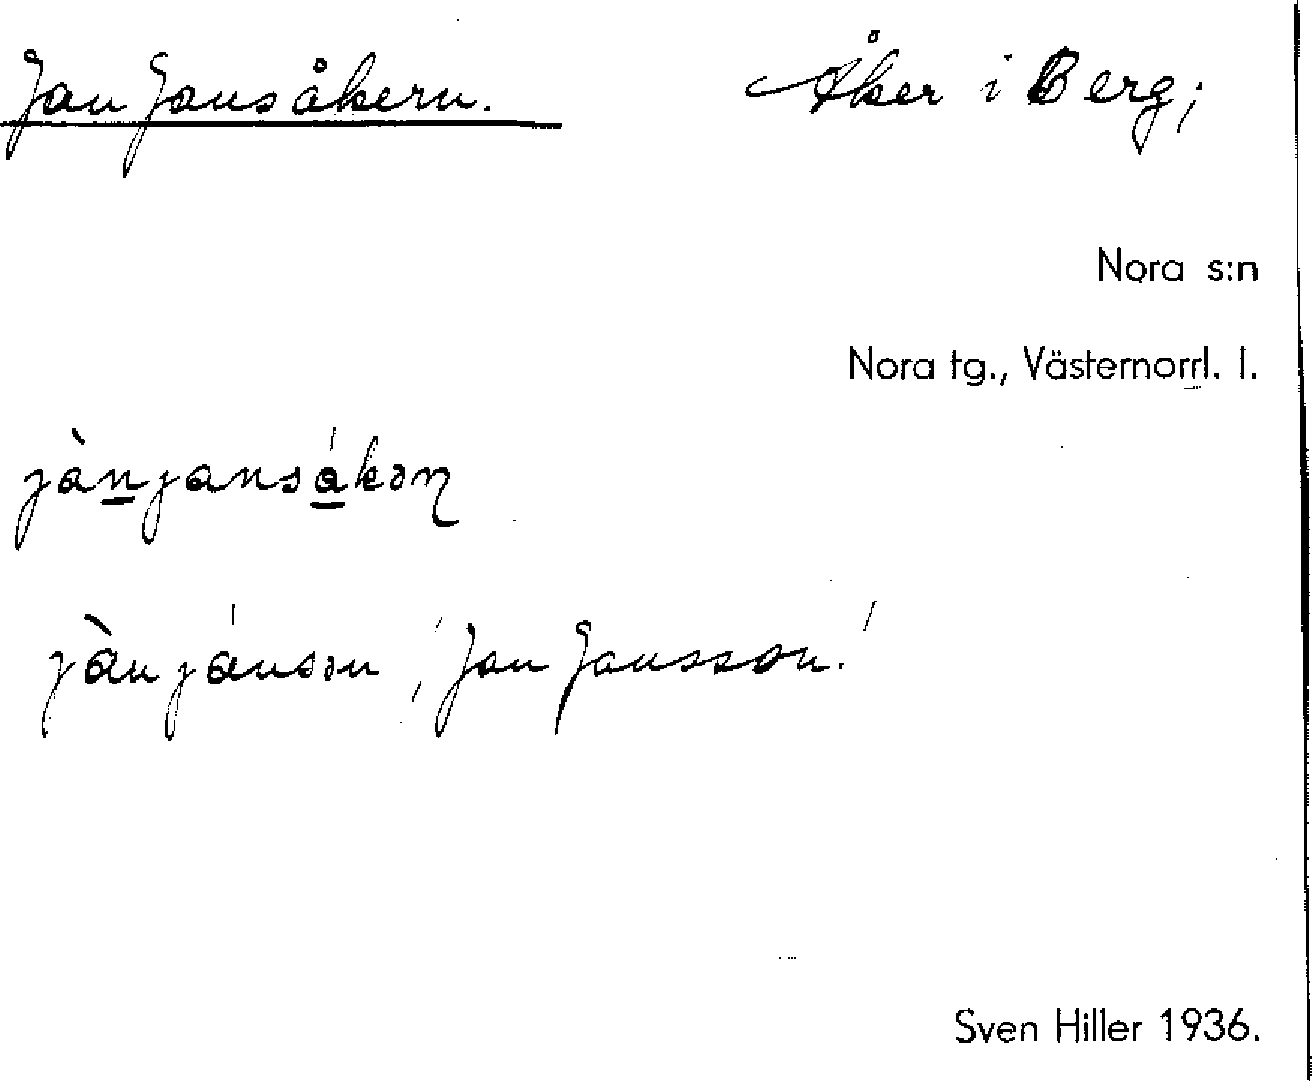 Jan Jansåkern. Åker i Berg;
Nora s:n
Nora tg., Västernorrl. l.
jàn̲jansá̲kəɳ
jànjánsən, 'Jan Jansson.'
Sven Hiller 1936.